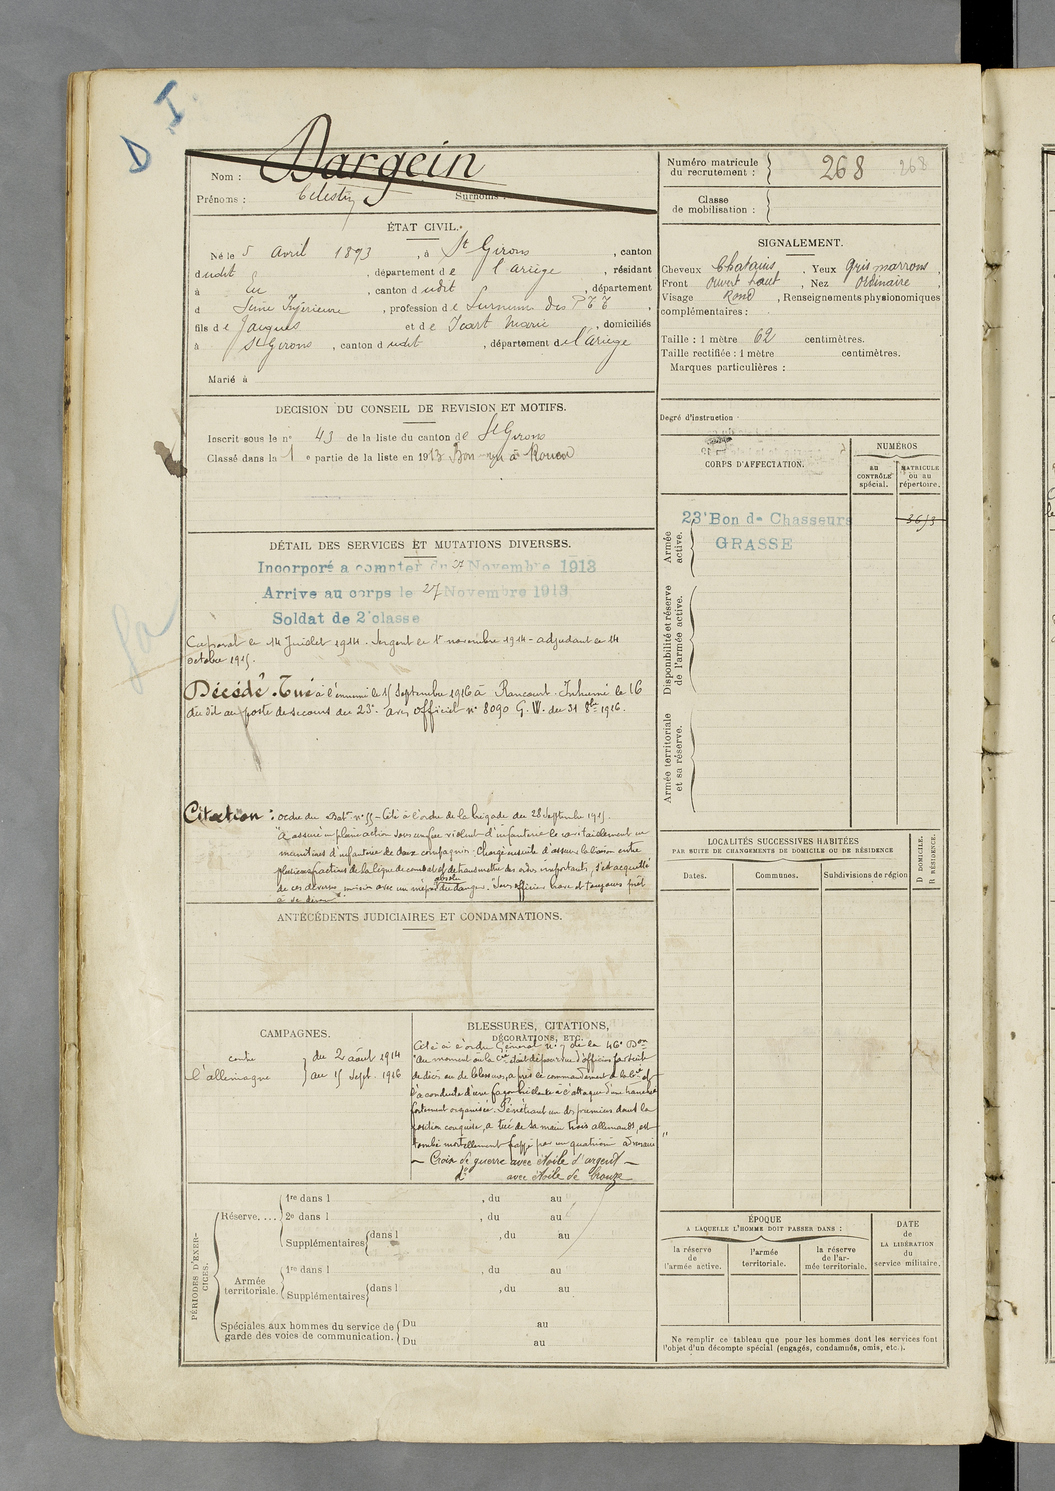 D I
Nom : Dargein
Prénoms : Célestin Surnoms :
Numéro matricule du recrutement : 268 268
Classe de mobilisation :
ÉTAT CIVIL.
Né le 5 Avril 1893, à St Girons, canton
dudit, département de l'Ariège, résidant
à Eu, canton dudit, département
d Seine Inférieure, profession de Surnum des PTT,
fils de Jacques et de Icart Marie, domiciliés
à St Girons, canton dudit, département de l'Ariège
Marié à
SIGNALEMENT.
Cheveux Chatains. Yeux Gris marrons,
Front ouvert haut, Nez Ordinaire,
Visage Rond, Renseignements physionomiques
complémentaires :
Taille : 1 mètre 62 centimètres.
Taille rectifiée : 1 mètre centimètres.
Marques particulières :
Degré d'instruction
DECISION DU CONSEIL DE REVISION ET MOTIFS.
Inscrit sous le n° 43 de la liste du canton de St Girons
Classé dans la 1e partie de la liste en 1913 Bon à Rouen
CORPS D'AFFECTATION.
NUMÉROS
au CONTRÔLE spécial.
MATRICULE ou au répertoire.
Armée active.
23e Bon de Chasseurs
GRASSE
Disponibilité et réserve de l'armée active.
Armée territoriale et sa réserve.
DÉTAIL DES SERVICES ET MUTATIONS DIVERSES.
Incorporé a compter du 27 Novembre 1913
Arrive au corps le 27 Novembre 1913
Soldat de 2e classe
Caporal le 14 Juillet 1914. Sergent le 1er novembre 1914 - adjudant le 14
octobre 1915.
Décédé. Tué à l'ennemi le 15 Septembre 1916 à Rancourt. Inhumé le 16
du dit au poste de secours du 23e. avis officiel n° 8090 G. W. du 31 8bre 1916.
Citation : ordre du Bat. n° 55 - Cité à l'ordre de la brigade du 28 Septembre 1915.
"A assuré en pleine action sous un feu violent d'infanterie le ravitaillement en
munitions d'infanterie de deux compagnies. Chargé ensuite d'assurer la liaison entre
plusieurs fractions de la ligne de combat et de transmettre des ordres importants, s'est acquitté
de ces diverses missions avec un mépris absolu du danger. Sous officier brave et toujours prêt
à se dévouer"
ANTÉCÉDENTS JUDICIAIRES ET CONDAMNATIONS.
LOCALITÉS SUCCESSIVES HABITÉES
PAR SUITE DE CHANGEMENTS DE DOMICILE OU DE RÉSIDENCE
Dates. Communes. Subdivisions de région
D DOMICILE.
R RÉSIDENCE.
CAMPAGNES.
contre l'allemagne
du 2 août 1914
au 15 Sept. 1916
BLESSURES, CITATIONS,
DÉCORATIONS, ETC.
Cité à l'ordre Général n° 7 de la 46e Don
"Au moment où la Cie était dépourvue d'officiers par suite
de décès ou de blessures, a pris le commandement de la Cie et
l'a conduite d'une façon brillante à l'attaque d'une tranchée
fortement organisée. Pénétrant un des premiers dans la
position conquise, a tué de sa main trois allemands, est
tombé mortellement frappé par un quatrième adversaire"
- Croix de guerre avec étoile d'argent -
do avec étoile de bronze
PÉRIODES D'EXERCICES.
Réserve....
1re dans l , du au
2e dans l , du au
Supplémentaires dans l , du au
Armée territoriale.
1re dans l , du au
Supplémentaires dans l , du au
Spéciales aux hommes du service de garde des voies de communication.
Du au
Du au
ÉPOQUE
A LAQUELLE L'HOMME DOIT PASSER DANS :
la réserve de l'armée active.
l'armée territoriale.
la réserve de l'armée territoriale.
DATE de LA LIBÉRATION du service militaire.
Ne remplir ce tableau que pour les hommes dont les services font
l'objet d'un décompte spécial (engagés, condamnés, omis, etc.).